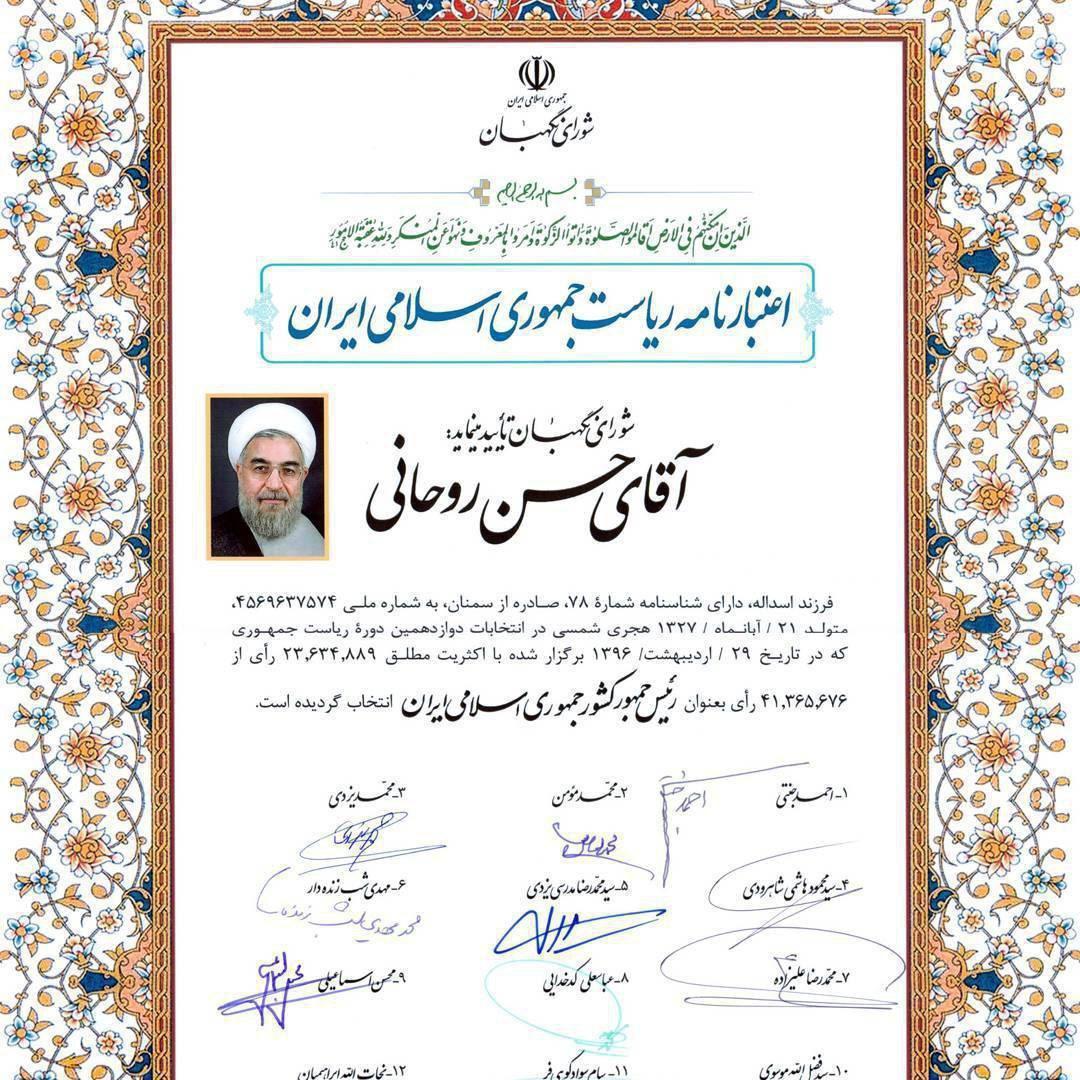 جمهوری اسلامی ایران
شورای نگهبان
بسم الله الرحمن الرحیم
الَّذینَ اِن مَکَّنّٰهُم فِی الاَرضِ اَقامُوا الصَّلوٰةَ وَءاتَوُا الزَّکوٰةَ وَاَمَروا بِالمَعروفِ وَنَهَوا عَنِ المُنکَرِ وَلِلّٰهِ عٰقِبَةُ الاُمورِ
اعتبارنامه ریاست جمهوری اسلامی ایران
شورای نگهبان تأیید مینماید:
آقای حسن روحانی
فرزند اسداله، دارای شناسنامه شمارهٔ ۷۸، صادره از سمنان، به شماره ملی ۴۵۶۹۶۳۷۵۷۴،
متولد ۲۱ / آبانماه / ۱۳۲۷ هجری شمسی در انتخابات دوازدهمین دورهٔ ریاست جمهوری
که در تاریخ ۲۹ / اردیبهشت/ ۱۳۹۶ برگزار شده با اکثریت مطلق ۲۳,۶۳۴,۸۸۹ رأی از
۴۱,۳۶۵,۶۷۶ رأی بعنوان رئیس جمهور کشور جمهوری اسلامی ایران انتخاب گردیده است.
۱- احمد جنتی ۲- محمد مؤمن ۳- محمد یزدی
۴- سید محمود هاشمی شاهرودی ۵- سید محمدرضا مدرسی یزدی ۶- مهدی شب زنده دار
۷- محمدرضا علیزاده ۸- عباسعلی کدخدایی ۹- محسن اسماعیلی
۱۰- سید فضل الله موسوی ۱۱- سام سوادکوهی فر ۱۲- نجات الله ابراهیمیان